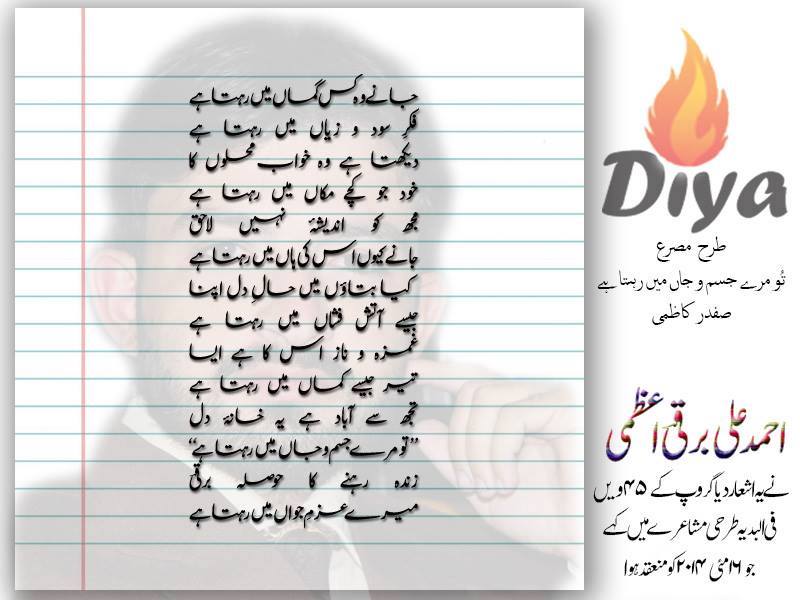 جانے وہ کس گماں میں رہتا ہے
فکرِ سود و زیاں میں رہتا ہے
دیکھتا ہے وہ خواب محلوں کا
خود جو کچے مکاں میں رہتا ہے
مجھ کو اندیشۂ نہیں لاحق
جانے کیوں اس کی ہاں میں رہتا ہے
کیا بتاؤں میں حالِ دل اپنا
جیسے آتش فشاں میں رہتا ہے
غمزہ و ناز اس کا ہے ایسا
تیر جیسے کماں میں رہتا ہے
تجھ سے آباد ہے یہ خانۂ دل
”تو مرے جسم و جاں میں رہتا ہے“
زندہ رہنے کا حوصلہ برقیؔ
میرے عزمِ جواں میں رہتا ہے
Diya
طرح مصرع
تُو مرے جسم و جاں میں رہتا ہے
صفدر کاظمی
احمد علی برقیؔ اعظمی
نے یہ اشعار دیا گروپ کے ۴۵ ویں
فی البدیہ طرحی مشاعرے میں کہے
جو ۱۶ مئی ۲۰۱۴ کو منعقد ہوا